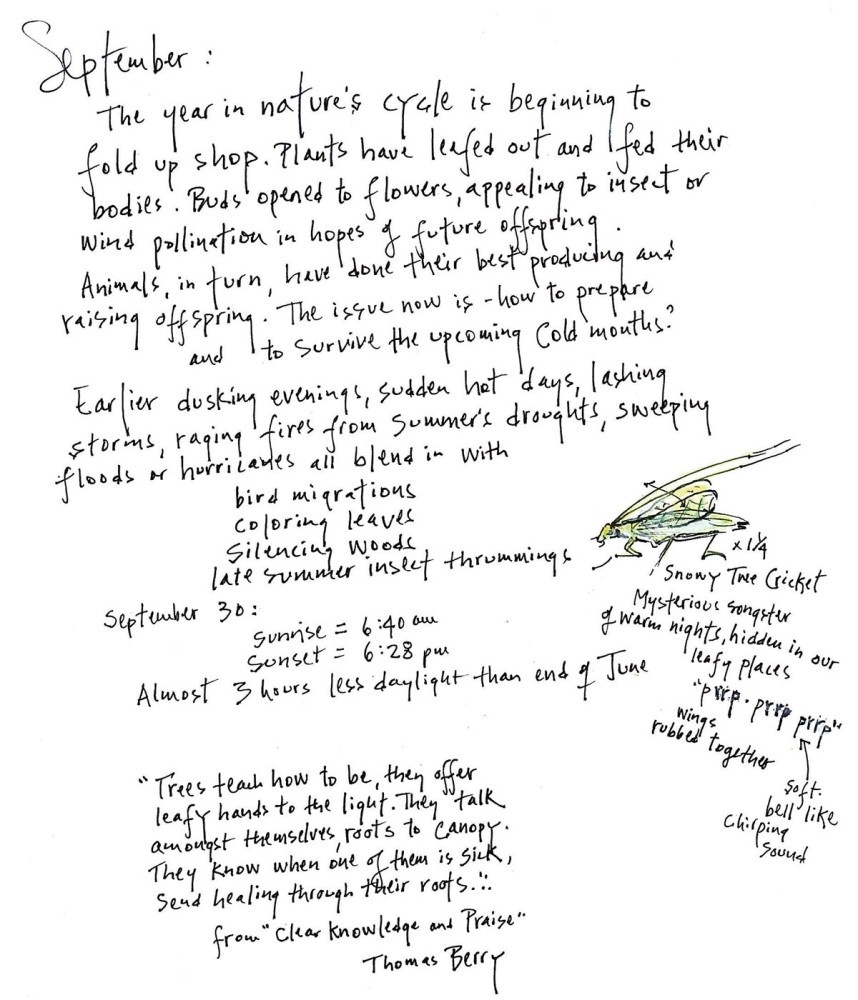 September:
The year in nature's cycle is beginning to
fold up shop. Plants have leafed out and fed their
bodies. Buds opened to flowers, appealing to insect or
wind pollination in hopes of future offspring.
Animals, in turn, have done their best producing and
raising offspring. The issue now is - how to prepare
and to survive the upcoming cold months?
Earlier dusking evenings, sudden hot days, lashing
storms, raging fires from summer's droughts, sweeping
floods or hurricanes all blend in with
bird migrations
coloring leaves
silencing woods
late summer insect thrummings
x 1¼
Snowy Tree Cricket
Mysterious songster
of warm nights, hidden in our
leafy places
"prrp. prrp prrp"
wings
rubbed together
soft.
bell like
chirping
sound
September 30:
sunrise = 6:40 am
sunset = 6:28 pm
Almost 3 hours less daylight than end of June
"Trees teach how to be, they offer
leafy hands to the light. They talk
amongst themselves, roots to canopy.
They know when one of them is sick,
send healing through their roots..."
from "Clear Knowledge and Praise"
Thomas Berry